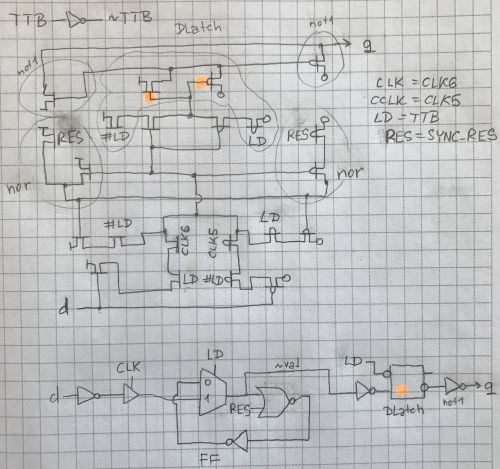 TTB ~TTB
DLatch
not1
not1
q
CLK = CLK6
CCLK = CLK5
LD = TTB
RES = SYNC_RES
RES
#LD
LD
RES
nor
nor
#LD
CLK6
CLK5
LD
LD
#LD
d
LD
CLK
~val
LD
d
0
1
RES
DLatch
not1
q
FF